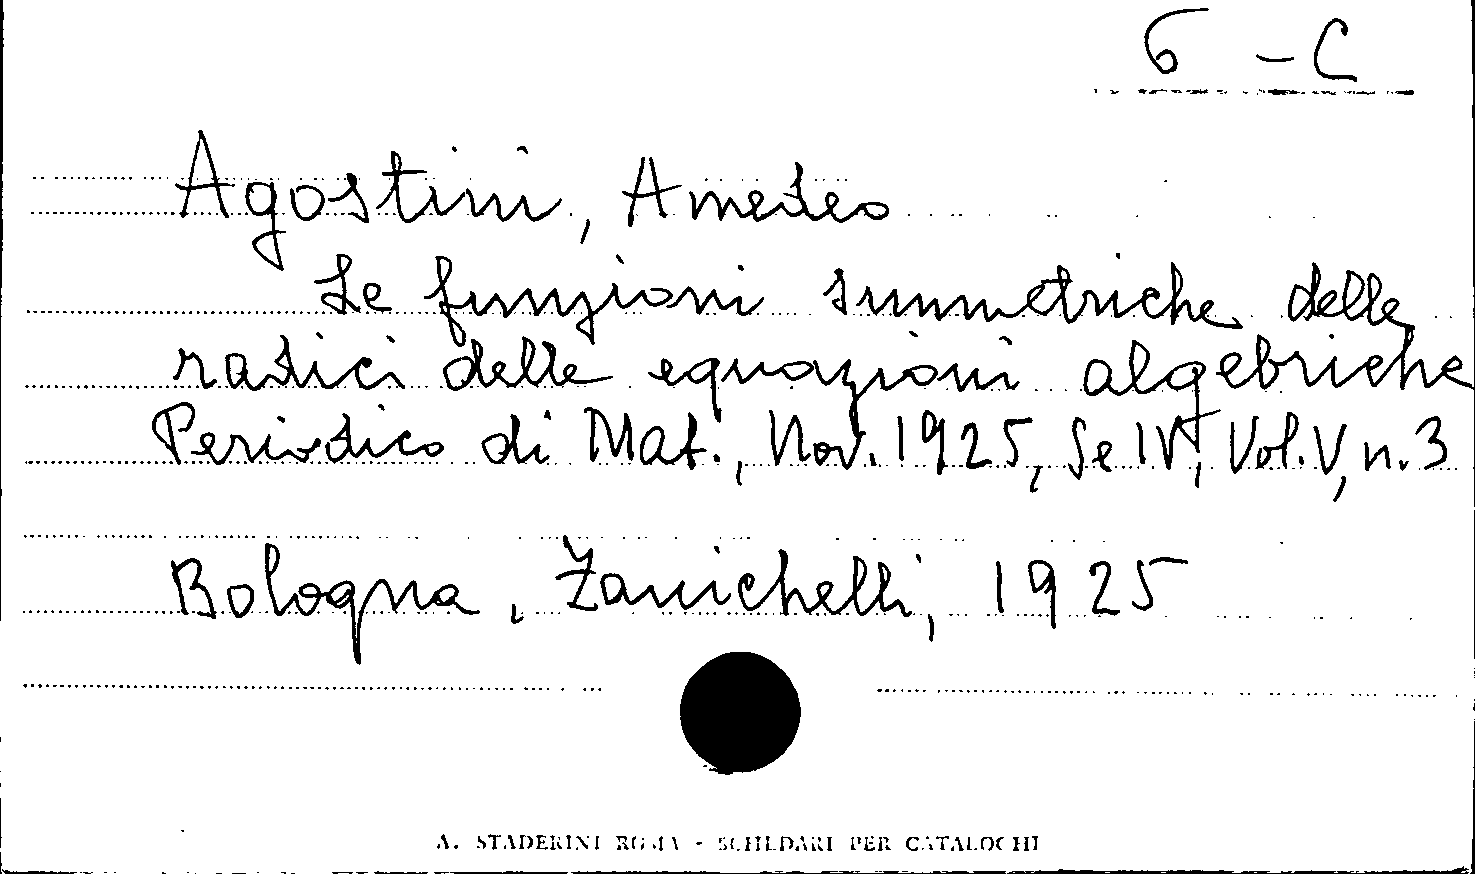 6 - C
Agostini, Amedeo
Le funzioni simmetriche delle
radici delle equazioni algebriche
Periodico di Mat., Nov. 1925, Se IV, Vol. V, n. 3
Bologna, Zanichelli, 1925
A. STADERINI ROMA - SCHEDARI PER CATALOGHI